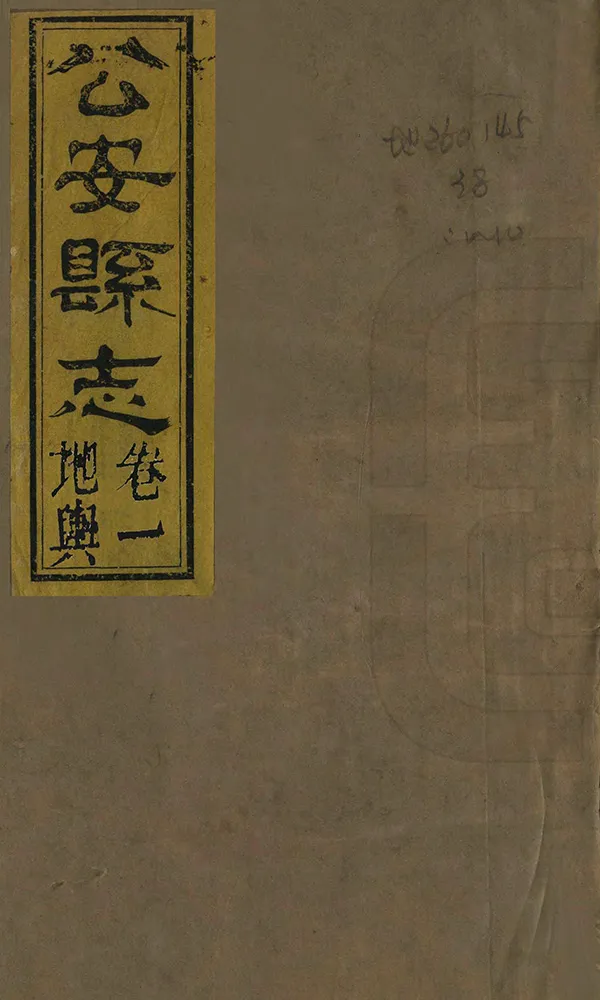 公安縣志
卷一
地輿
地260.145
38